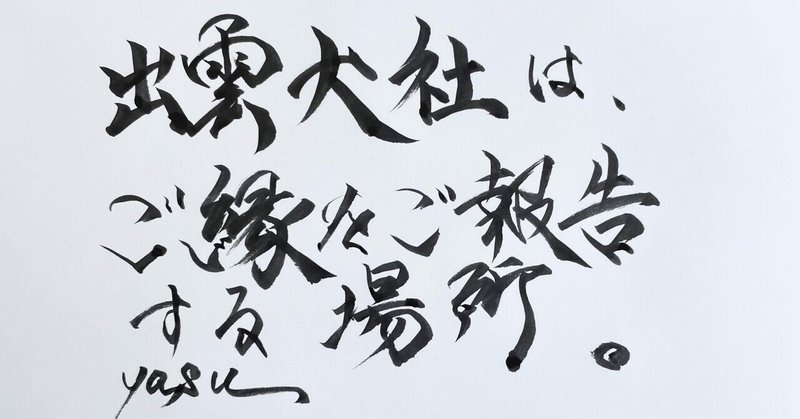 出雲大社は、
ご縁をご報告
する場所。
yasu